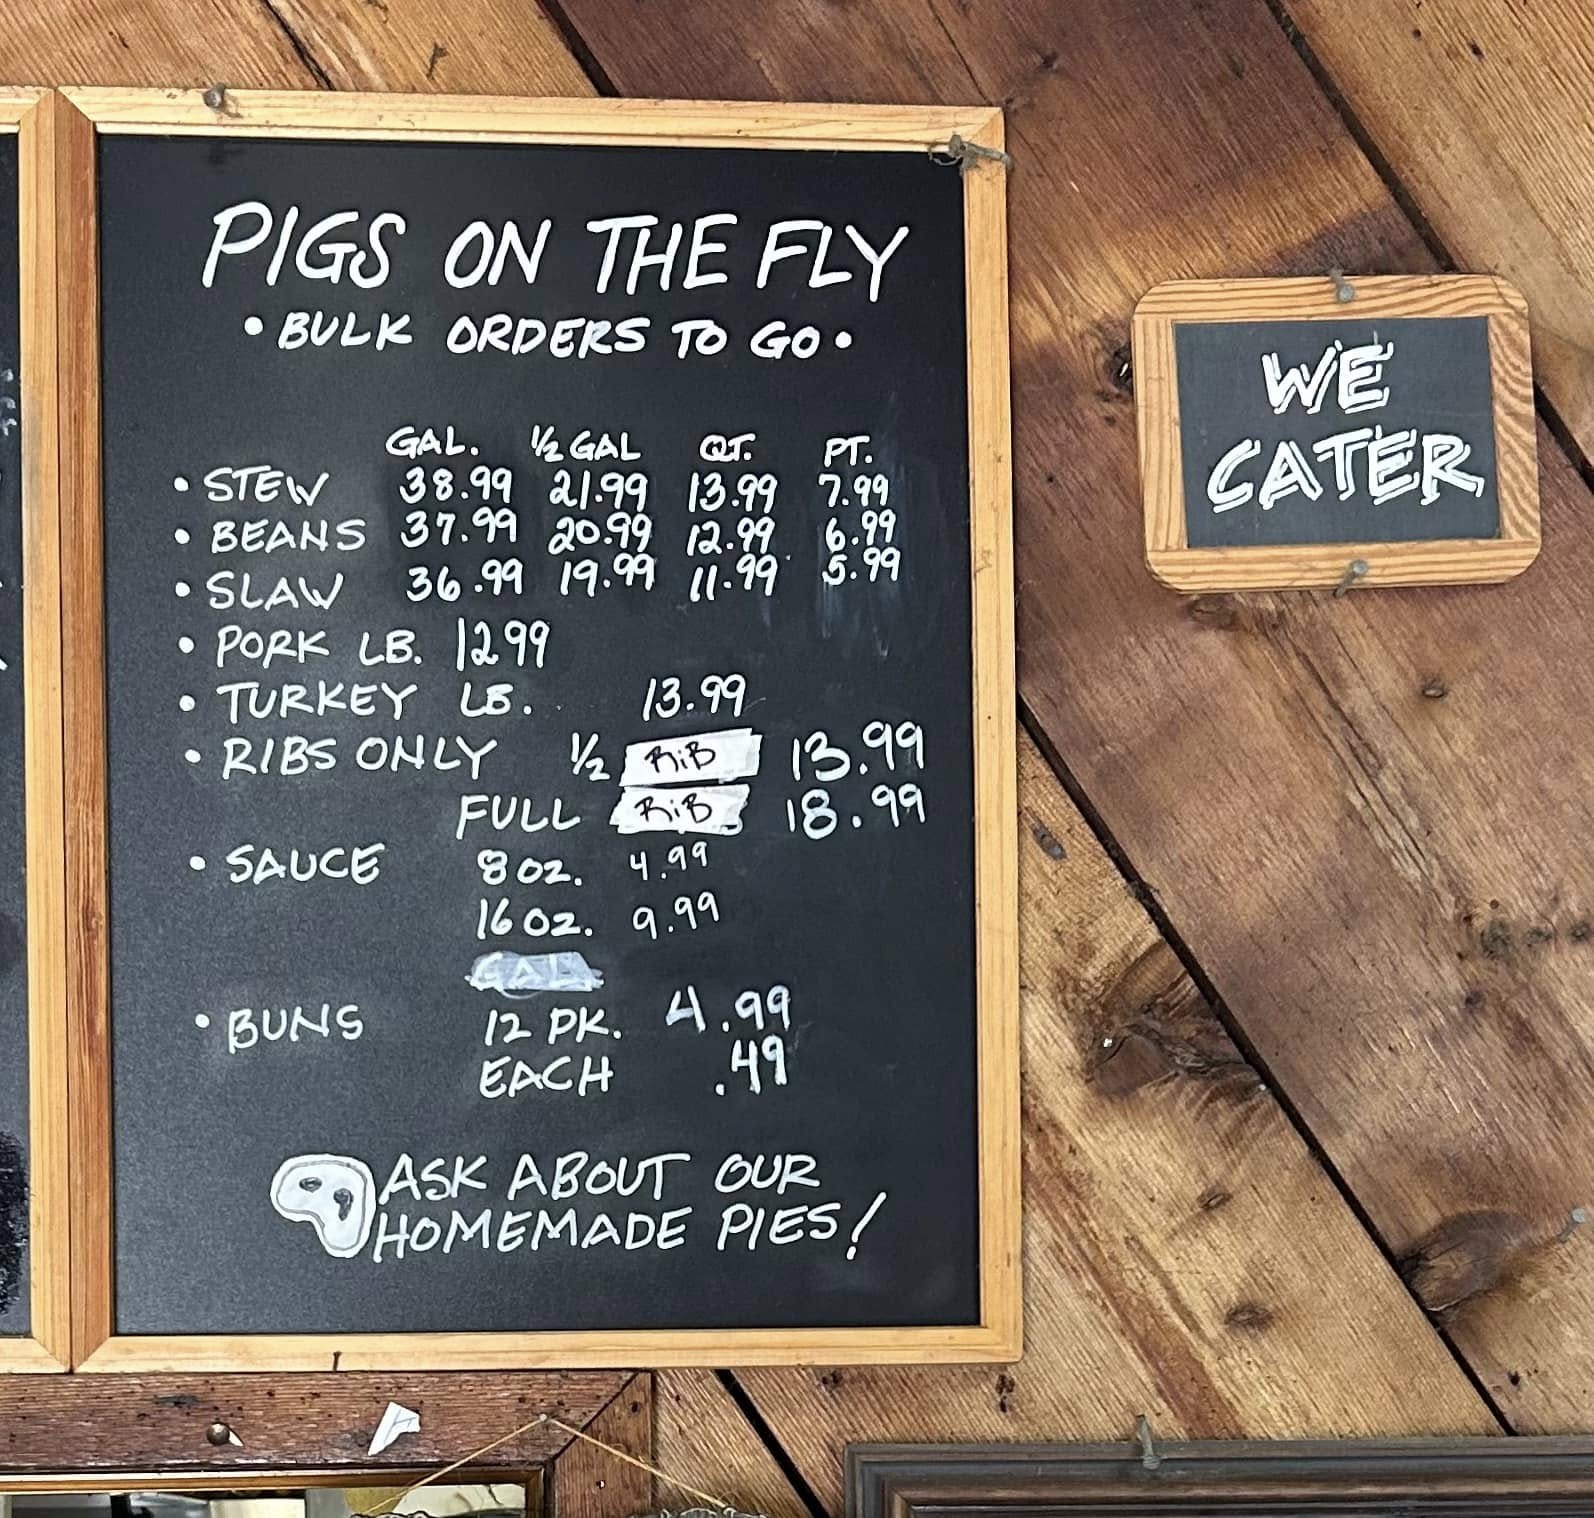 PIGS ON THE FLY
• BULK ORDERS TO GO •
GAL. ½ GAL QT. PT.
• STEW 38.99 21.99 13.99 7.99
• BEANS 37.99 20.99 12.99 6.99
• SLAW 36.99 19.99 11.99 5.99
• PORK LB. 1299
• TURKEY LB. 13.99
• RIBS ONLY ½ RiB 13.99
FULL RiB 18.99
• SAUCE 8 OZ. 4.99
16 OZ. 9.99
GAL
• BUNS 12 PK. 4.99
EACH .49
ASK ABOUT OUR
HOMEMADE PIES!
WE
CATER